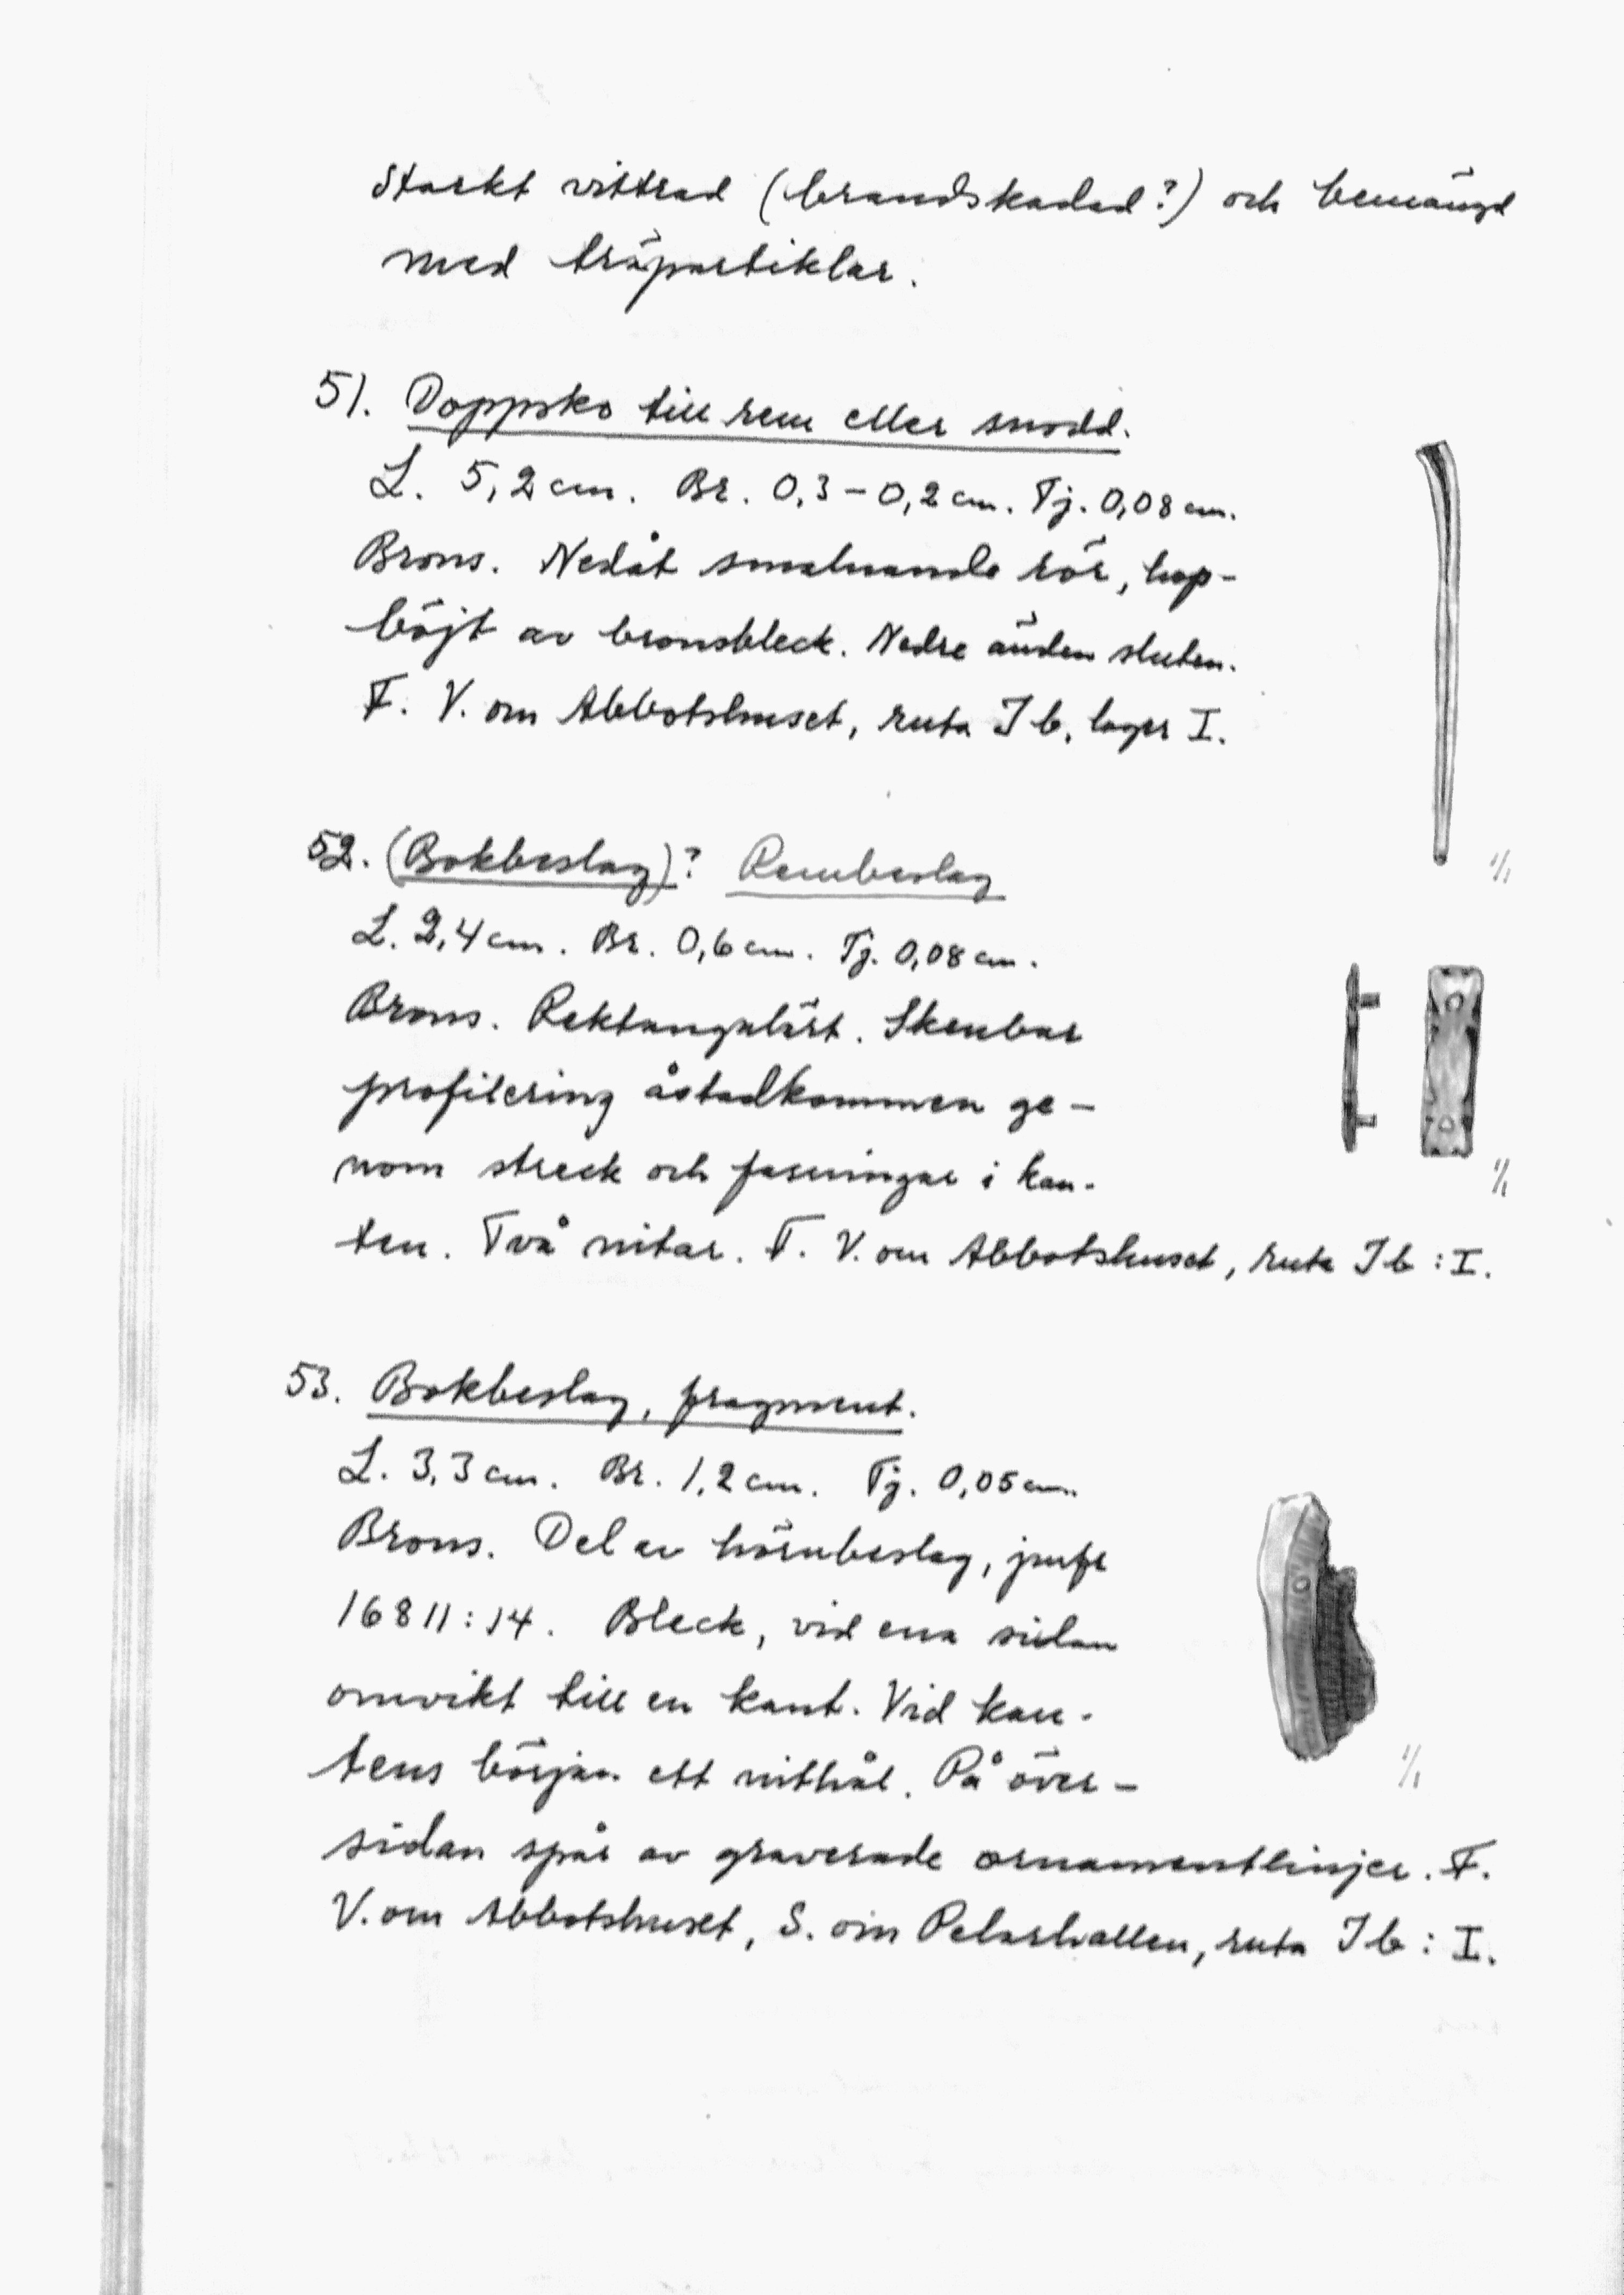 Starkt vittrad (brandskadad?) och bemängd
med träpartiklar.
51. Doppsko till rem eller snodd.
L. 5,2 cm. Br. 0,3 – 0,2 cm. Tj. 0,08 cm.
Brons. Nedåt smalnande rör, hop-
böjt av bronsbleck. Nedre änden sluten.
F. V. om Abbotshuset, ruta J b, lager I.
1/1
52. (Bokbeslag)? Rembeslag
L. 2,4 cm. Br. 0,6 cm. Tj. 0,08 cm.
Brons. Rektangulärt. Skenbar
profilering åstadkommen ge-
nom streck och fasningar i kan-
1/1
ten. Två nitar. F. V. om Abbotshuset, ruta J b : I.
53. Bokbeslag, fragment.
L. 3,3 cm. Br. 1,2 cm. Tj. 0,05 cm.
Brons. Del av hörnbeslag, jmfr
16811:14. Bleck, vid ena sidan
omvikt till en kant. Vid kan-
tens början ett nithål. På över-
1/1
sidan spår av graverade ornamentlinjer. F.
V. om Abbotshuset, S. om Pelarhallen, ruta J b : I.